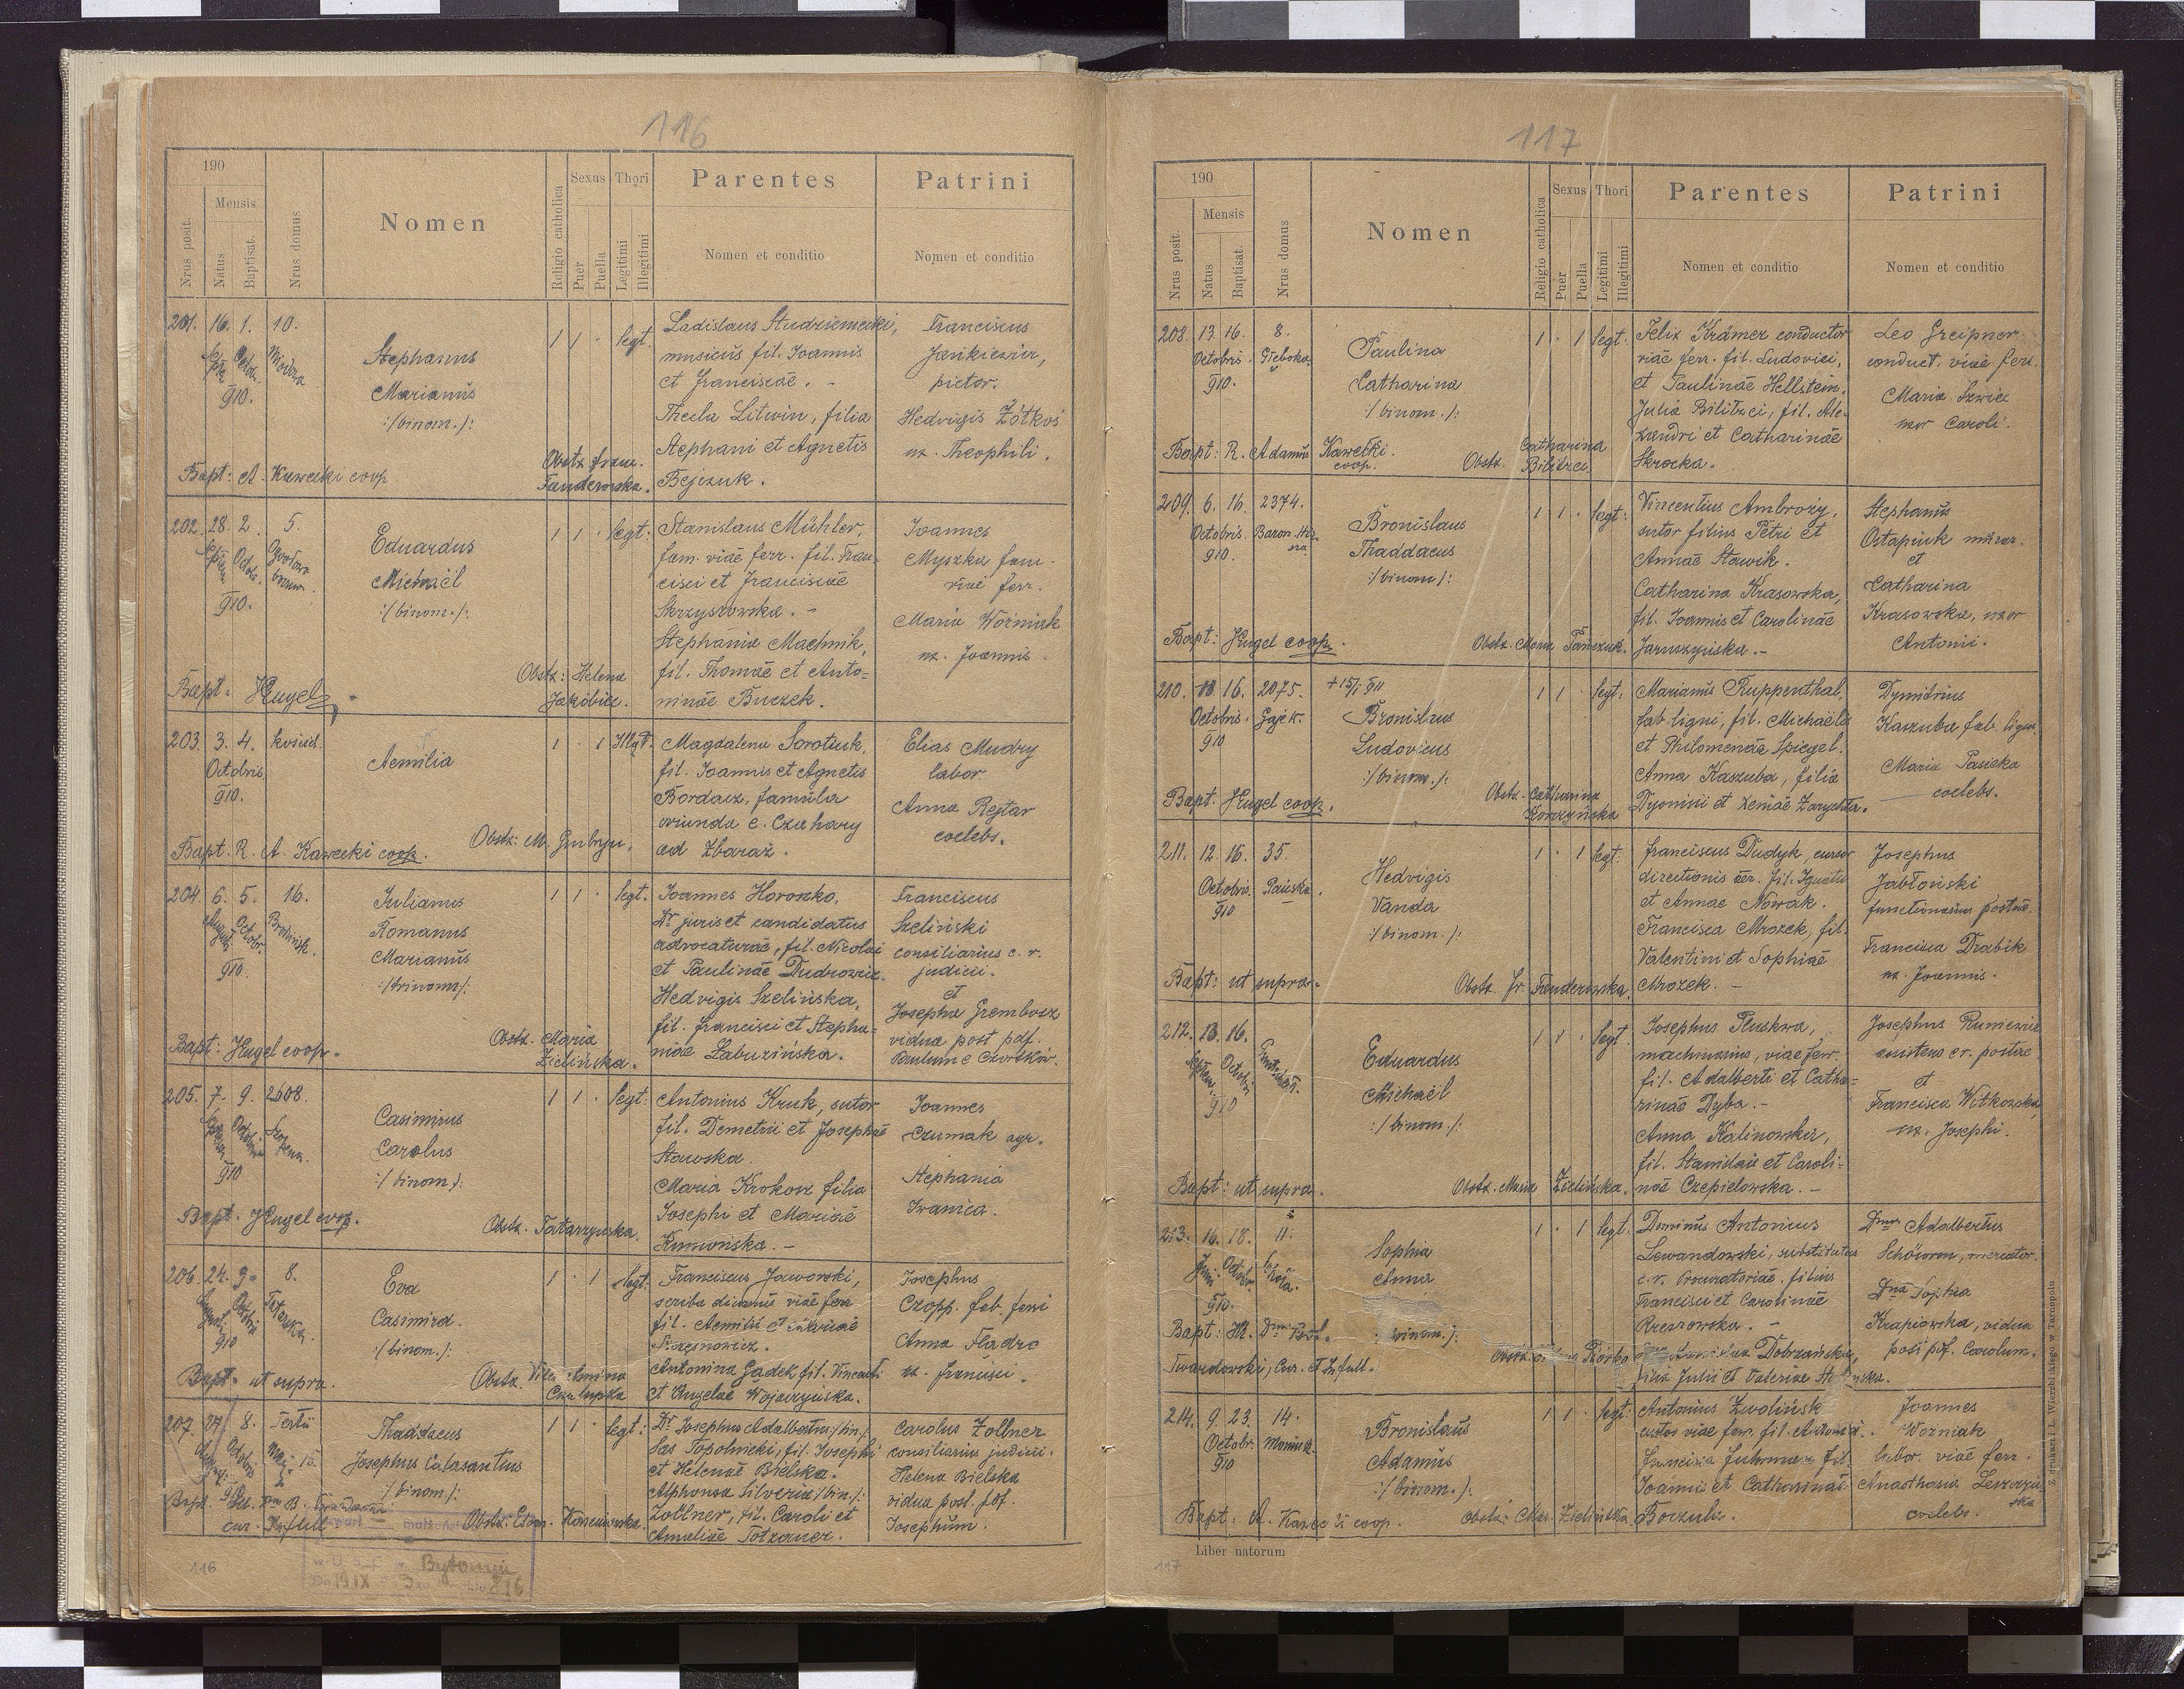 116
190
Nrus posit.
Mensis
Natus
Baptisat.
Nrus domus
Nomen
Religio catholica
Sexus
Puer
Puella
Thori
Legitimi
Illegitimi
Parentes
Nomen et conditio
Patrini
Nomen et conditio
201. 16. 1. 10.
910.
Stephanus
Marianus
:/binom./:
1 1 · legt.
Ladislaus Studziemecki,
musicus fil. Joannis
et Franciscae. -
Thecla Litwin, filia
Stephani et Agnetis
Bejczuk.
Franciscus
Jankiewicz,
pictor.
Hedvigis Żółkoś
ux. Theophili.
Bapt: A. Kawecki coop
Obstz. Franc.
Fanderowska.
202. 28. 2. 5.
910.
Eduardus
Michaël
:/binom./:
1 1 · legt:
Stanislaus Mühler,
fam. viae ferr. fil. Fran-
cisci et Franciscae
Skrzyszowska. -
Stephania Machnik,
fil. Thomae et Anto=
ninae Buczek.
Joannes
Myszka fam.
viae ferr.
Maria Woźniak
ux. Joannis.
Bapt: Hugel
Obstz: Helena
Jakóbiec.
203. 3. 4.
Octobris
910.
Aemilia
1 · 1 Illegt.
Magdalena Sorotiuk,
fil. Joannis et Agnetis
Bordacz, famula
oriunda e. Czahary
ad Zbaraż.
Elias Mudry
labor
Anna Rejtar
coelebs.
Bapt. R. A. Kawecki coop.
Obstz: M.
204. 6. 5. 16.
910.
Julianus
Romanus
Marianus
:/trinom/:
1 1 · legt.
Joannes Horoszko,
Dr juris et candidatus
advocaturae, fil. Nicolai
et Paulinae Dudrowicz.
Hedvigis Szelińska,
fil. Francisci et Stepha=
niae Łaburzińska.
Franciscus
Szeliński
consiliarius c. r.
judicii.
et
Josepha Grembosz
vidua post pdf.
Paulum e Czortków.
Bapt: Hugel coop.
Obstz. Maria
Zielińska.
205. 7. 9. 2608.
910
Casimirus
Carolus
:/binom/:
1 1 · legt:
Antonius Kruk, sutor
fil. Demetrii et Josephae
Stawska.
Maria Krokosz filia
Josephi et Mariae
Joannes
Czumak agr.
Stephania
Iwanica.
Bapt. Hugel coop.
Obstz. Tatarzyńska.
206. 24. 9. 8.
910
Eva
Casimira.
:/binom./:
1 · 1 legt.
Franciscus Jaworski,
scriba diurnus viae ferr
fil. Aemilii et
Antonina Gądek fil. Vincenti
et Angelae Wojarzyńska.
Josephus
Czopp. fab. ferri
Anna Fladro
ux. Francisci.
Bapt. ut supra.
Obstz.
Czaluppka
207. 27/ 8. Tertii
Thaddaeus
Josephus Calasantius
:/binom/:
1 1 · legt:
Dr. Josephus Adalbertus /:bin./:
Sas Topolnicki, fil. Josephi
et Helenae Bielska.
Alphonsa Silveria /:bin./:
Zollner, fil. Caroli et
Ameliae Totzauer.
Carolus Zollner
consiliarius judicii.
Helena Bielska
vidua post. pdf.
Josephum.
116
117
190
Nrus posit.
Mensis
Natus
Baptisat.
Nrus domus
Nomen
Religio catholica
Sexus
Puer
Puella
Thori
Legitimi
Illegitimi
Parentes
Nomen et conditio
Patrini
Nomen et conditio
208. 13. 16. 8.
Octobris.
910.
Paulina
Catharina
:/binom./:
1 · 1 legt.
Felix Krämer conductor
viae ferr. fil. Ludovici,
et Paulinae Hellstein.
Julia Bilitzci, fil. Ale-
xandri et Catharinae
Skrocka.
Leo Greipner
conduct. viae ferr.
Maria Szwiec
uxor Caroli.
Bapt: R. Adamus Kawecki.
coop.
Obstz. Catharina
Bilitzci.
209. 6. 16. 2374.
Octobris.
910.
Bronislaus
Thaddaeus
:/binom/:
1 1 · legt:
Vincentius Ambroży,
sutor filius Petri et
Annae Stawik.
Catharina Krasowska,
fil. Joannis et Carolinae
Jaruszyńska. -
Stephanus
Ostapiuk murar.
et
Catharina
Krasowska, uxor
Antonii.
Bapt: Hugel coop.
210. 16. 2075.
Octobris. Gajek.
910
Bronislaus
Ludovicus
:/binom./:
1 1 · legt:
Marianus Ruppenthal,
fab. ligni, fil. Michaëlis
et Philomenae Spiegel.
Anna Kaszuba, filia
Dyonisii et Xeniae Zarychta.
Dymitrius
Kaszuba fab. lign.
Maria Pasieka
coelebs.
Bapt. Hugel coop.
Obstz. Catharina
Korczyńska
211. 12. 16. 35.
Octobris. Pańska.
910
Hedvigis
Vanda
:/binom./:
1 · 1 legt:
Franciscus Dudyk, cursor
directionis aer. fil. Ignatii
et Annae Nowak.
Francisca Mrozek, fil.
Valentini et Sophiae
Mrozek. -
Josephus
Jabłoński
functionarius postae.
Francisca Drabik
ux. Joannis.
Bapt: ut supra.
Obstz. Fr. Fanderowska.
212. 13. 16.
910
Eduardus
Michaël
:/binom/:
1 1 · legt.
Josephus Pluskwa,
machinarius, viae ferr.
fil. Adalberti et Catha=
rinae Dyba. -
Anna Kalinowska,
fil. Stanislai et Caroli=
nae Czepielowska. -
Josephus Runiewicz
et
Francisca Witkowska,
ux. Josephi.
Bapt: ut supra.
Obstz. Maria Zielińska.
213. 16. 18. 11.
910.
Sophia
Anna
binom./:
1 · 1 legt.
Dominus Antonius
Lewandowski, substitutus
c. r. Procuratoriae. filius
Francisci et Carolinae
Kreszowska. -
Dobrzańska,
filia Julii et Valeriae
Dnus Adalbertus
Schöwon, mercator.
Dna Sophia
Krapiowska, vidua
post pdf. Carolum.
Twardowski, Cur. et Infult.
214. 9. 23. 14.
Octobr.
910
Bronislaus
Adamus
:/binom./:
1 1 · legt.
Antonius Zwolińsk
custos viae ferr. fil. Antonii.
Joannis et Catharinae
Joannes
Woźniak
labor. viae ferr.
Anasthasia
coelebs.
Bapt: A. coop.
Obstz: Mar. Zielińska
Liber natorum
117
Z drukarni L. Wierzbickiego w Tarnopolu